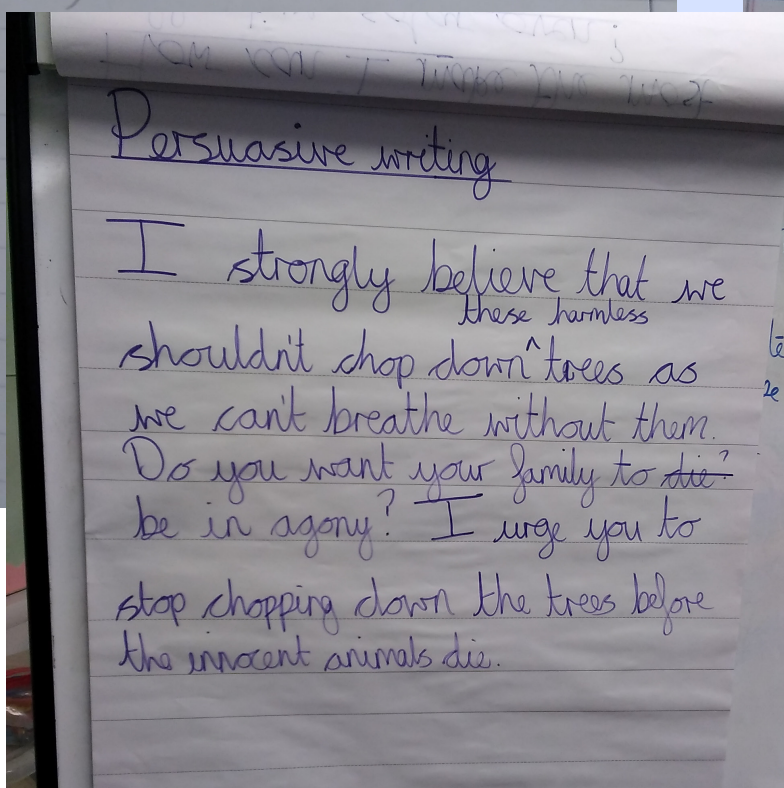 Persuasive writing
I strongly believe that we
these harmless
shouldn't chop down ^ trees as
we can't breathe without them.
Do you want your family to die?
be in agony? I urge you to
stop chopping down the trees before
the innocent animals die.